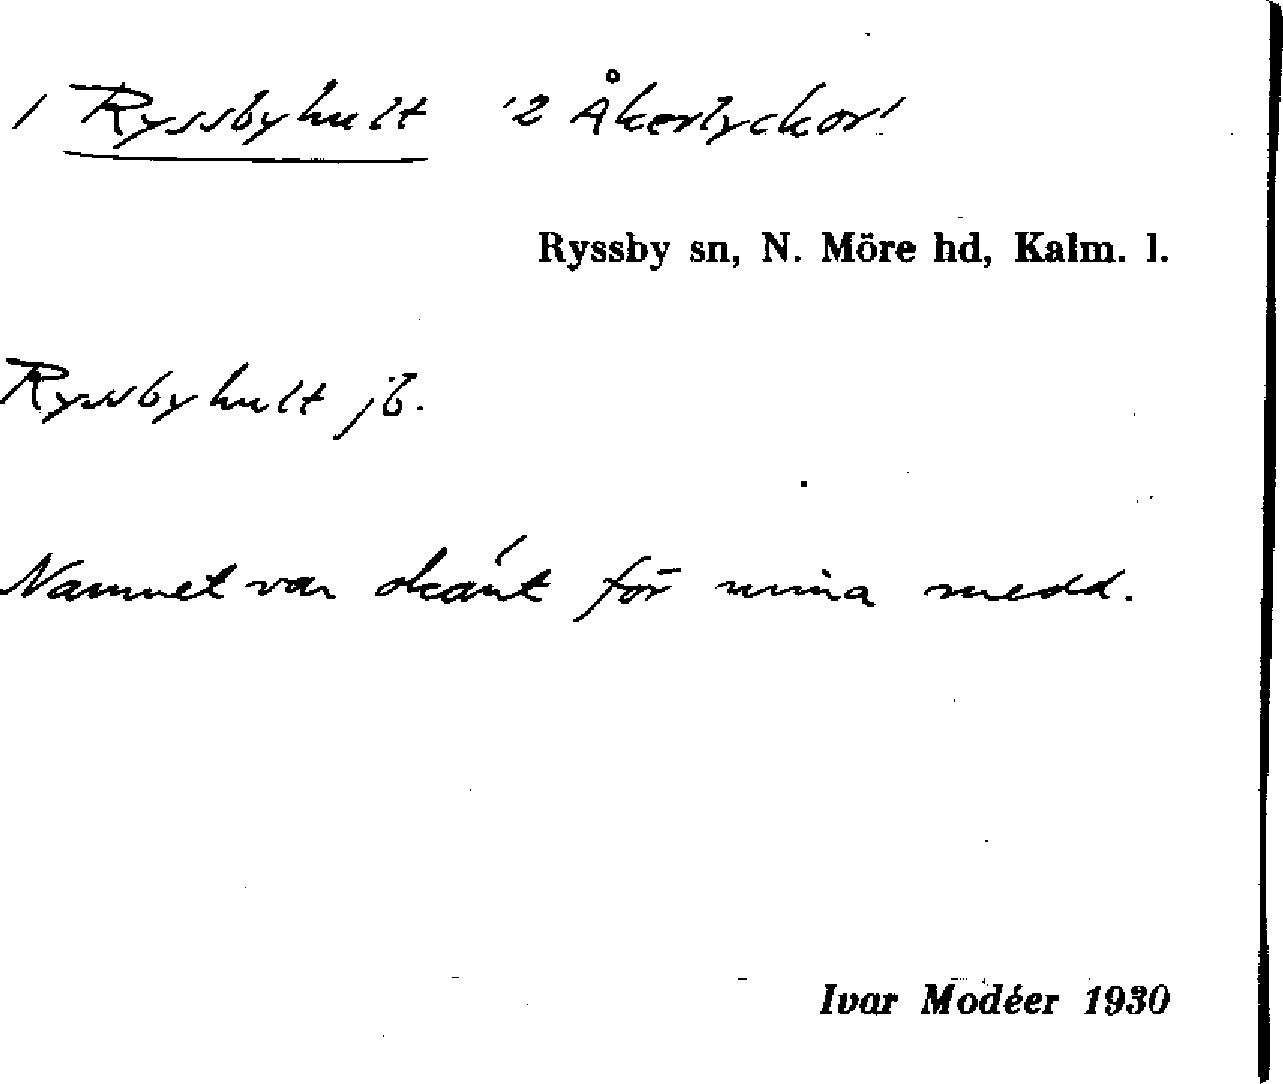 / Ryssbyhult '2 Åkerlyckor'
Ryssby sn, N. Möre hd, Kalm. l.
Ryssbyhult jb.
Namnet var okánt för mina medd.
Ivar Modéer 1930